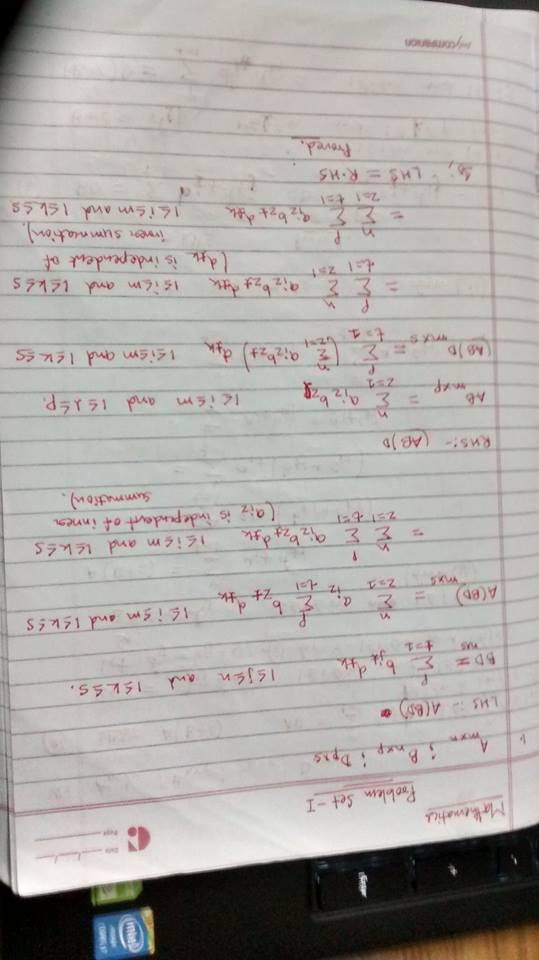 Mathematics
Problem Set - I
Date
Page
1
A m×n ; B n×p ; D p×s
LHS :- A(BD)
BD n×s = p Σ t=1 b jt d tk 1≤j≤n and 1≤k≤s.
A(BD) m×s = n Σ z=1 a iz p Σ t=1 b zt d tk 1≤i≤m and 1≤k≤s
= n Σ z=1 p Σ t=1 a iz b zt d tk 1≤i≤m and 1≤k≤s
(a iz is independent of inner
summation).
RHS :- (AB)D
AB m×p = n Σ z=1 a iz b zl 1≤i≤m and 1≤l≤p.
(AB)D m×s = p Σ t=1 ( n Σ z=1 a iz b zt ) d tk 1≤i≤m and 1≤k≤s
= p Σ t=1 n Σ z=1 a iz b zt d tk 1≤i≤m and 1≤k≤s
(d tk is independent of
inner summation).
= n Σ z=1 p Σ t=1 a iz b zt d tk 1≤i≤m and 1≤k≤s
So, LHS = R.HS
Proved.
mycompanion
intel